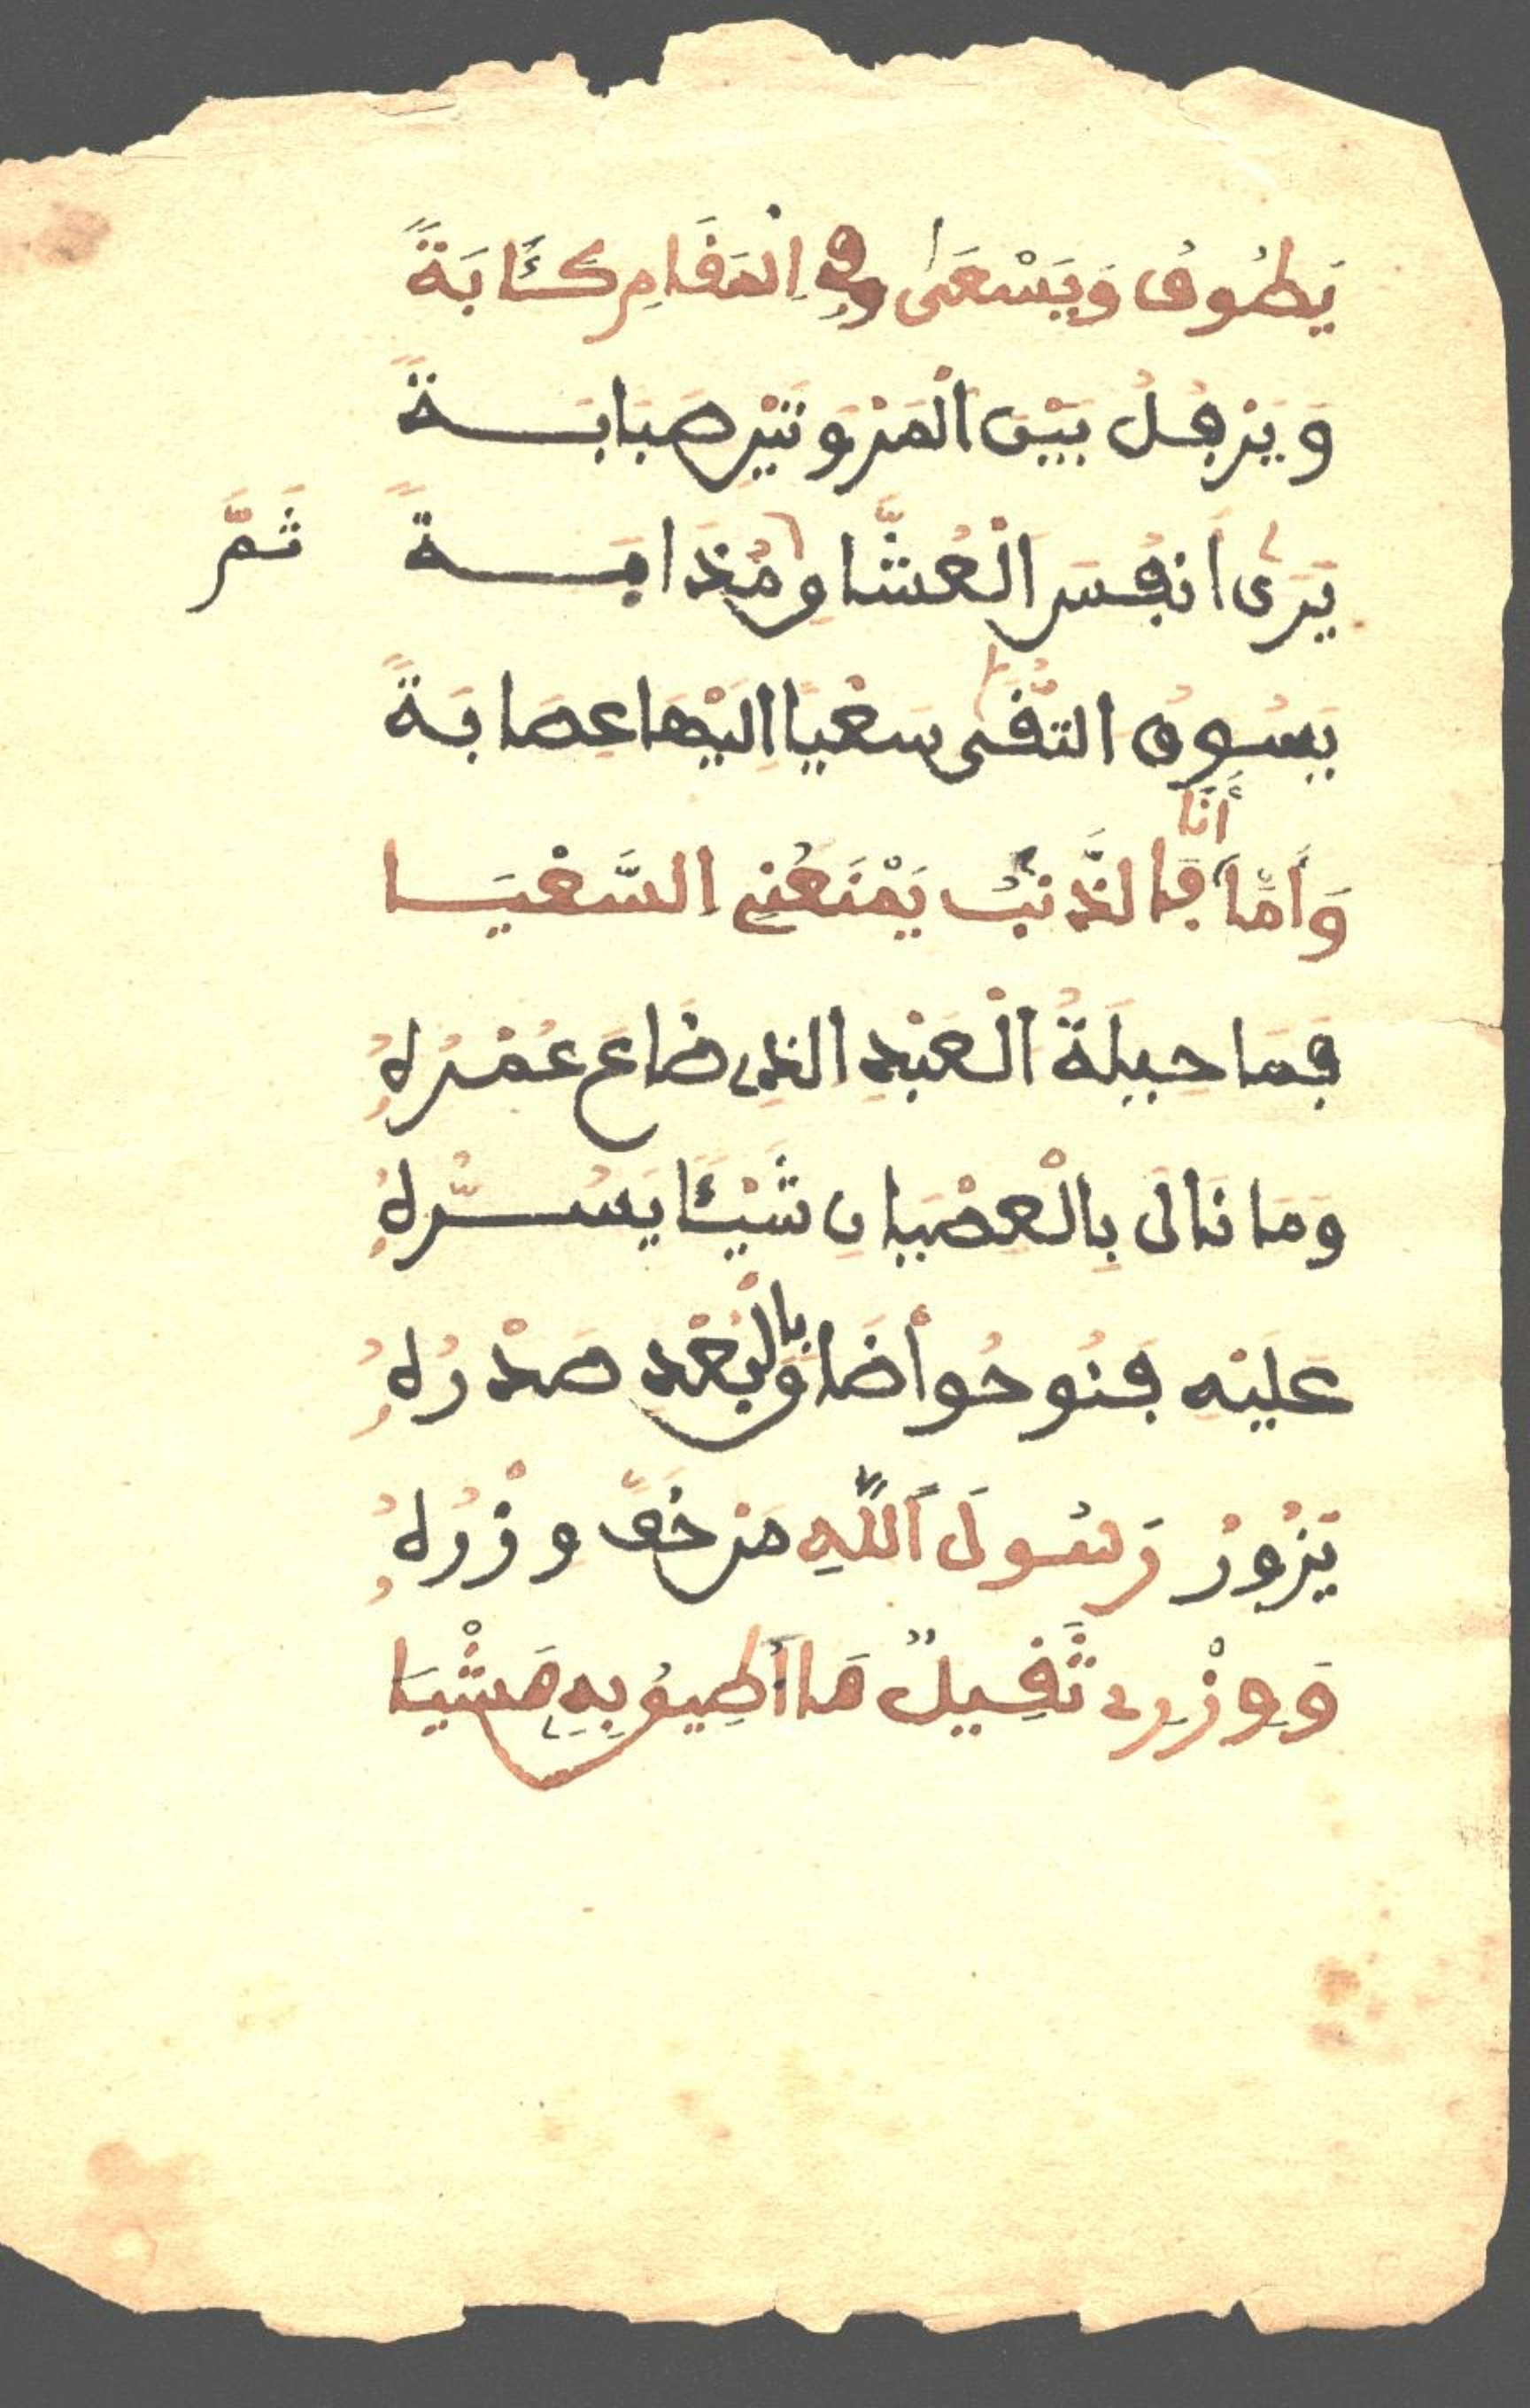 يَطُوفُ وَيَسْعَىٰ وفِي اِلْمَقَامِ كَـَٔابَةً
وَيَرْفُلُ بَيْنَ اَلْمَرْوَتَيْنِ صَبَابَةً
يَرَىٰ اَنفُسَ اَلْعُشَّاقِ مُذَابَةً ثَمَّ
يَسُوقُ التُّقَىٰ سَعْيًا اِلَيْهَا عِصَابَةً
وَأَمَّا أَنَا فَالذَّنبُ يَمْنَعُنِي السَّعْيَا
فَمَا حِيلَةُ اَلْعَبْدِ الذِي ضَاعَ عُمْرُهُ
وَمَا نَالَ بِالْعِصْيَانِ شَيْـًٔا يَسُرُّهُ
عَلَيْهِ فَنُوحُواْ ضَاقَ بِالْبُعْدِ صَدْرُهُ
يَزُورُ رَسُولَ اَللَّهِ مَن خَفَّ وِزْرُهُ
وَوِزْرِي ثَقِيلٌ مَا اُطِيقُ بِهِ مَشْيَا